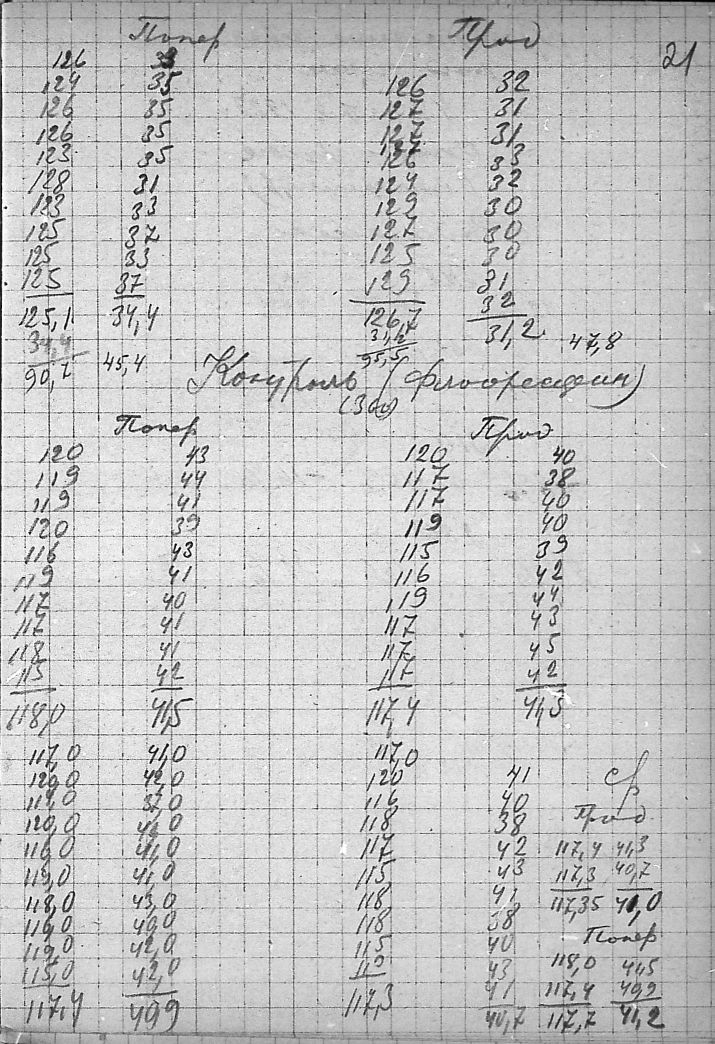 21
Попер Прод
126 33
124 35 126 32
126 35 127 31
126 35 127 31
123 35 126 33
128 31 124 32
123 33 129 30
125 37 127 30
125 33 125 30
125 37 129 31
125,1 34,4 126,7 32
34,4 31,2 31,2
90,7 45,4 95,5 47,8
Контроль (флюоресцеин)
Попер Прод
120 43 120 40
119 44 117 38
119 41 117 40
120 39 119 40
116 43 115 39
119 41 116 42
117 40 119 44
117 41 117 43
118 41 117 45
115 42 117 42
118,0 41,5 117,4 41,3
117,0 41,0 117,0
120,0 42,0 120 41 ср
37,0 116 40 Прод
120,0 118 38
116,0 41,0 117 42 117,4 41,3
41,0 115 43 117,3 40,7
118,0 43,0 118 41 117,35 41,0
40,0 118 38 Попер
119,0 42,0 115 40
115,0 42,0 43 118,0 41,5
117,4 40,9 117,3 41 117,4 40,9
40,7 117,7 41,2